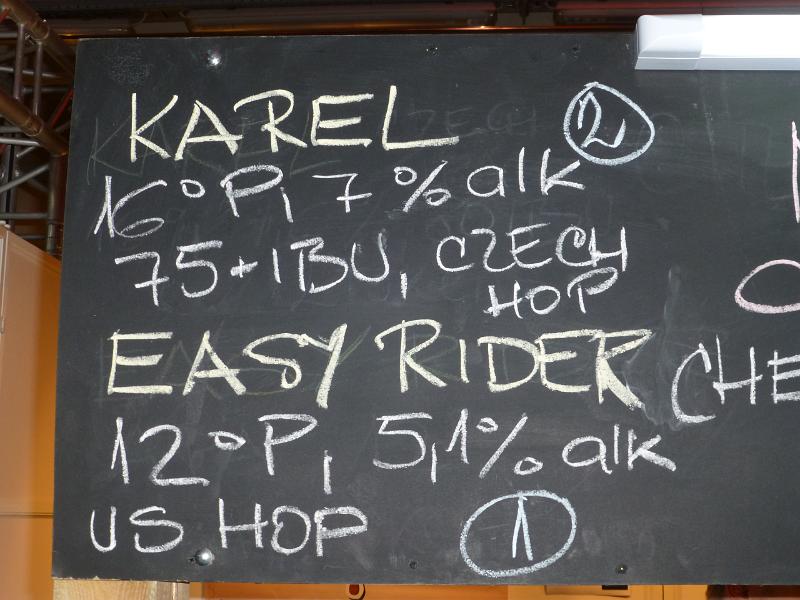 KAREL 2
16°P, 7% alk
75+IBU, CZECH
HOP
EASY RIDER
CHE
12°P, 5,1% alk
US HOP 1